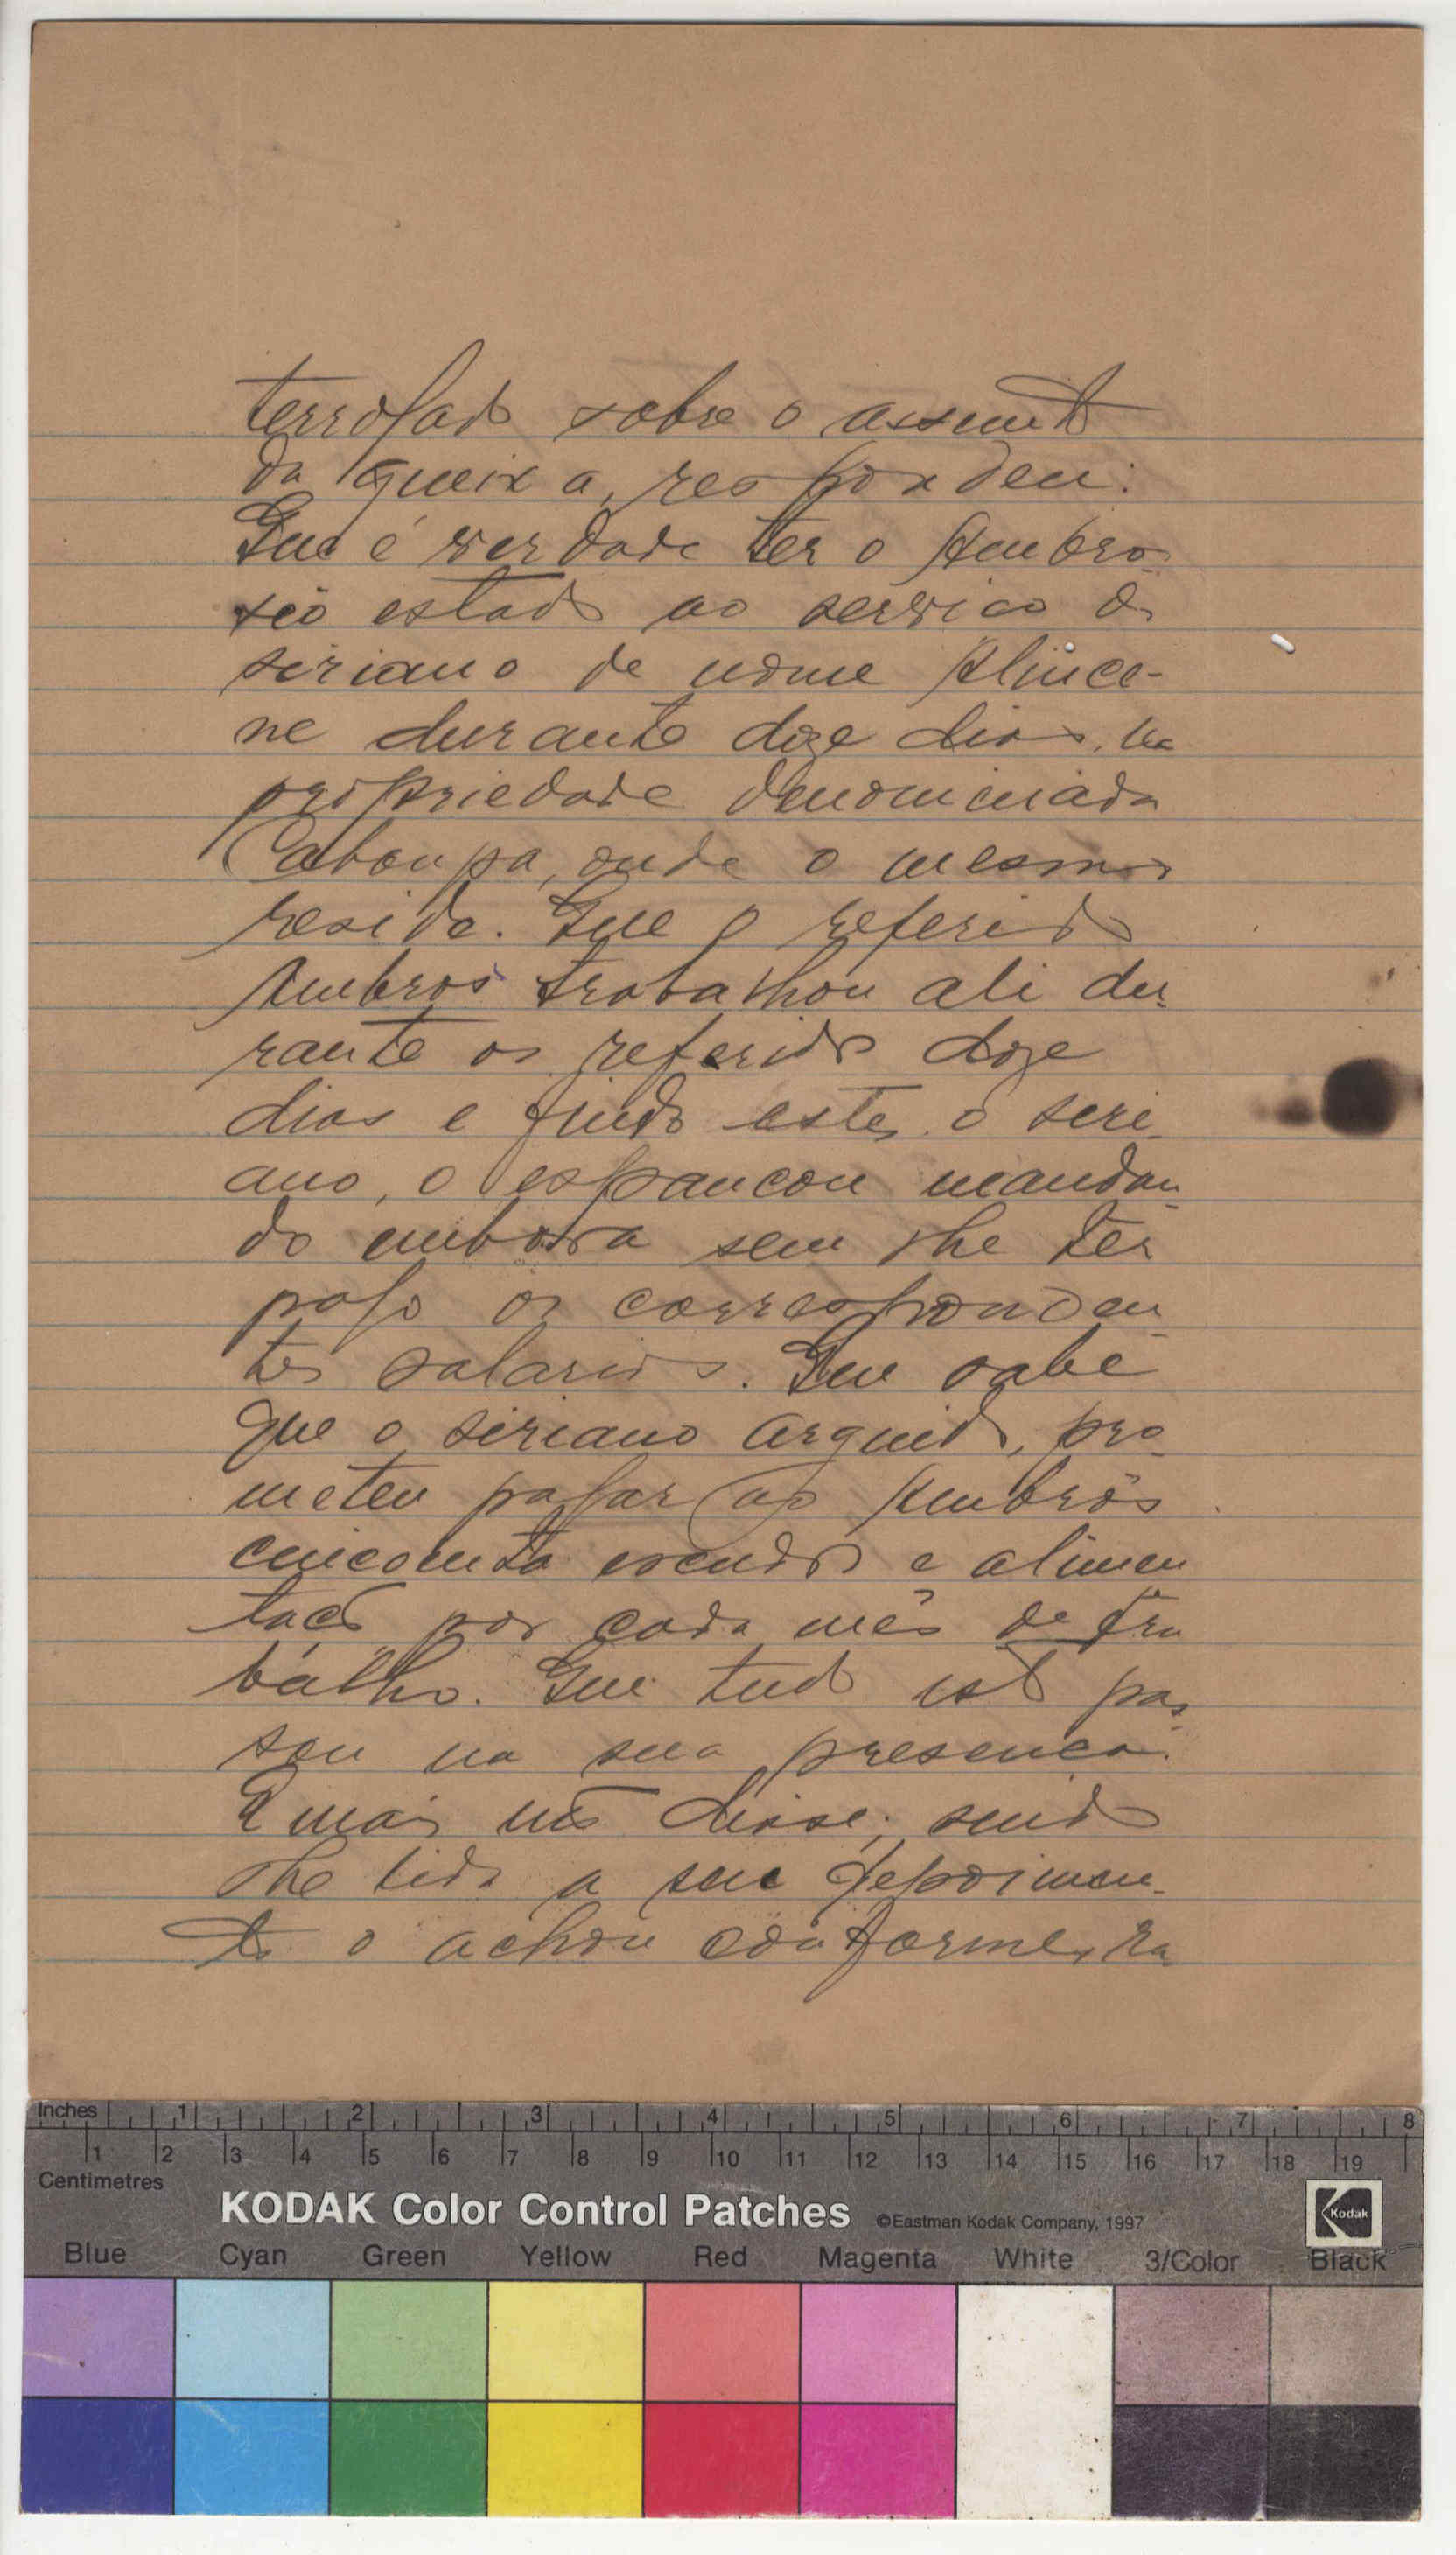 terrogado sobre o assunto
da queixa, respondeu:
Que é verdade ter o Ambro-
sio estado ao serviço do
siriano de nome
ne durante doze dias, na
propriedade denominada
Caboupa, onde o mesmo
reside. Que o referido
Ambros trabalhou ali du-
rante os referidos doze
dias e findo estes, o siri-
ano, o espancou mandan-
do embora sem lhe ter
pago os corresponden-
tes salarios. Que sabe
que o siriano arguido, pro-
meteu pagar ao Ambrós
cincoenta escudos e alimen
tacão por cada mês de tra
balho. Que tudo isto pas-
sou na sua presenca.
E mais não disse, sendo
lhe lido a seu depoimen-
to o achou conforme, ra
Inches 1 2 3 4 5 6 7 8
1 2 3 4 5 6 7 8 9 10 11 12 13 14 15 16 17 18 19
Centimetres
KODAK Color Control Patches ©Eastman Kodak Company, 1997 Kodak
Blue Cyan Green Yellow Red Magenta White 3/Color Black